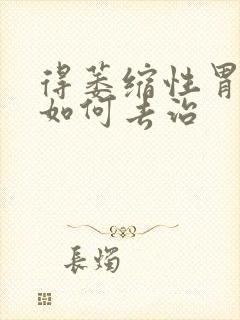 得萎缩性胃
如何去治
長燭